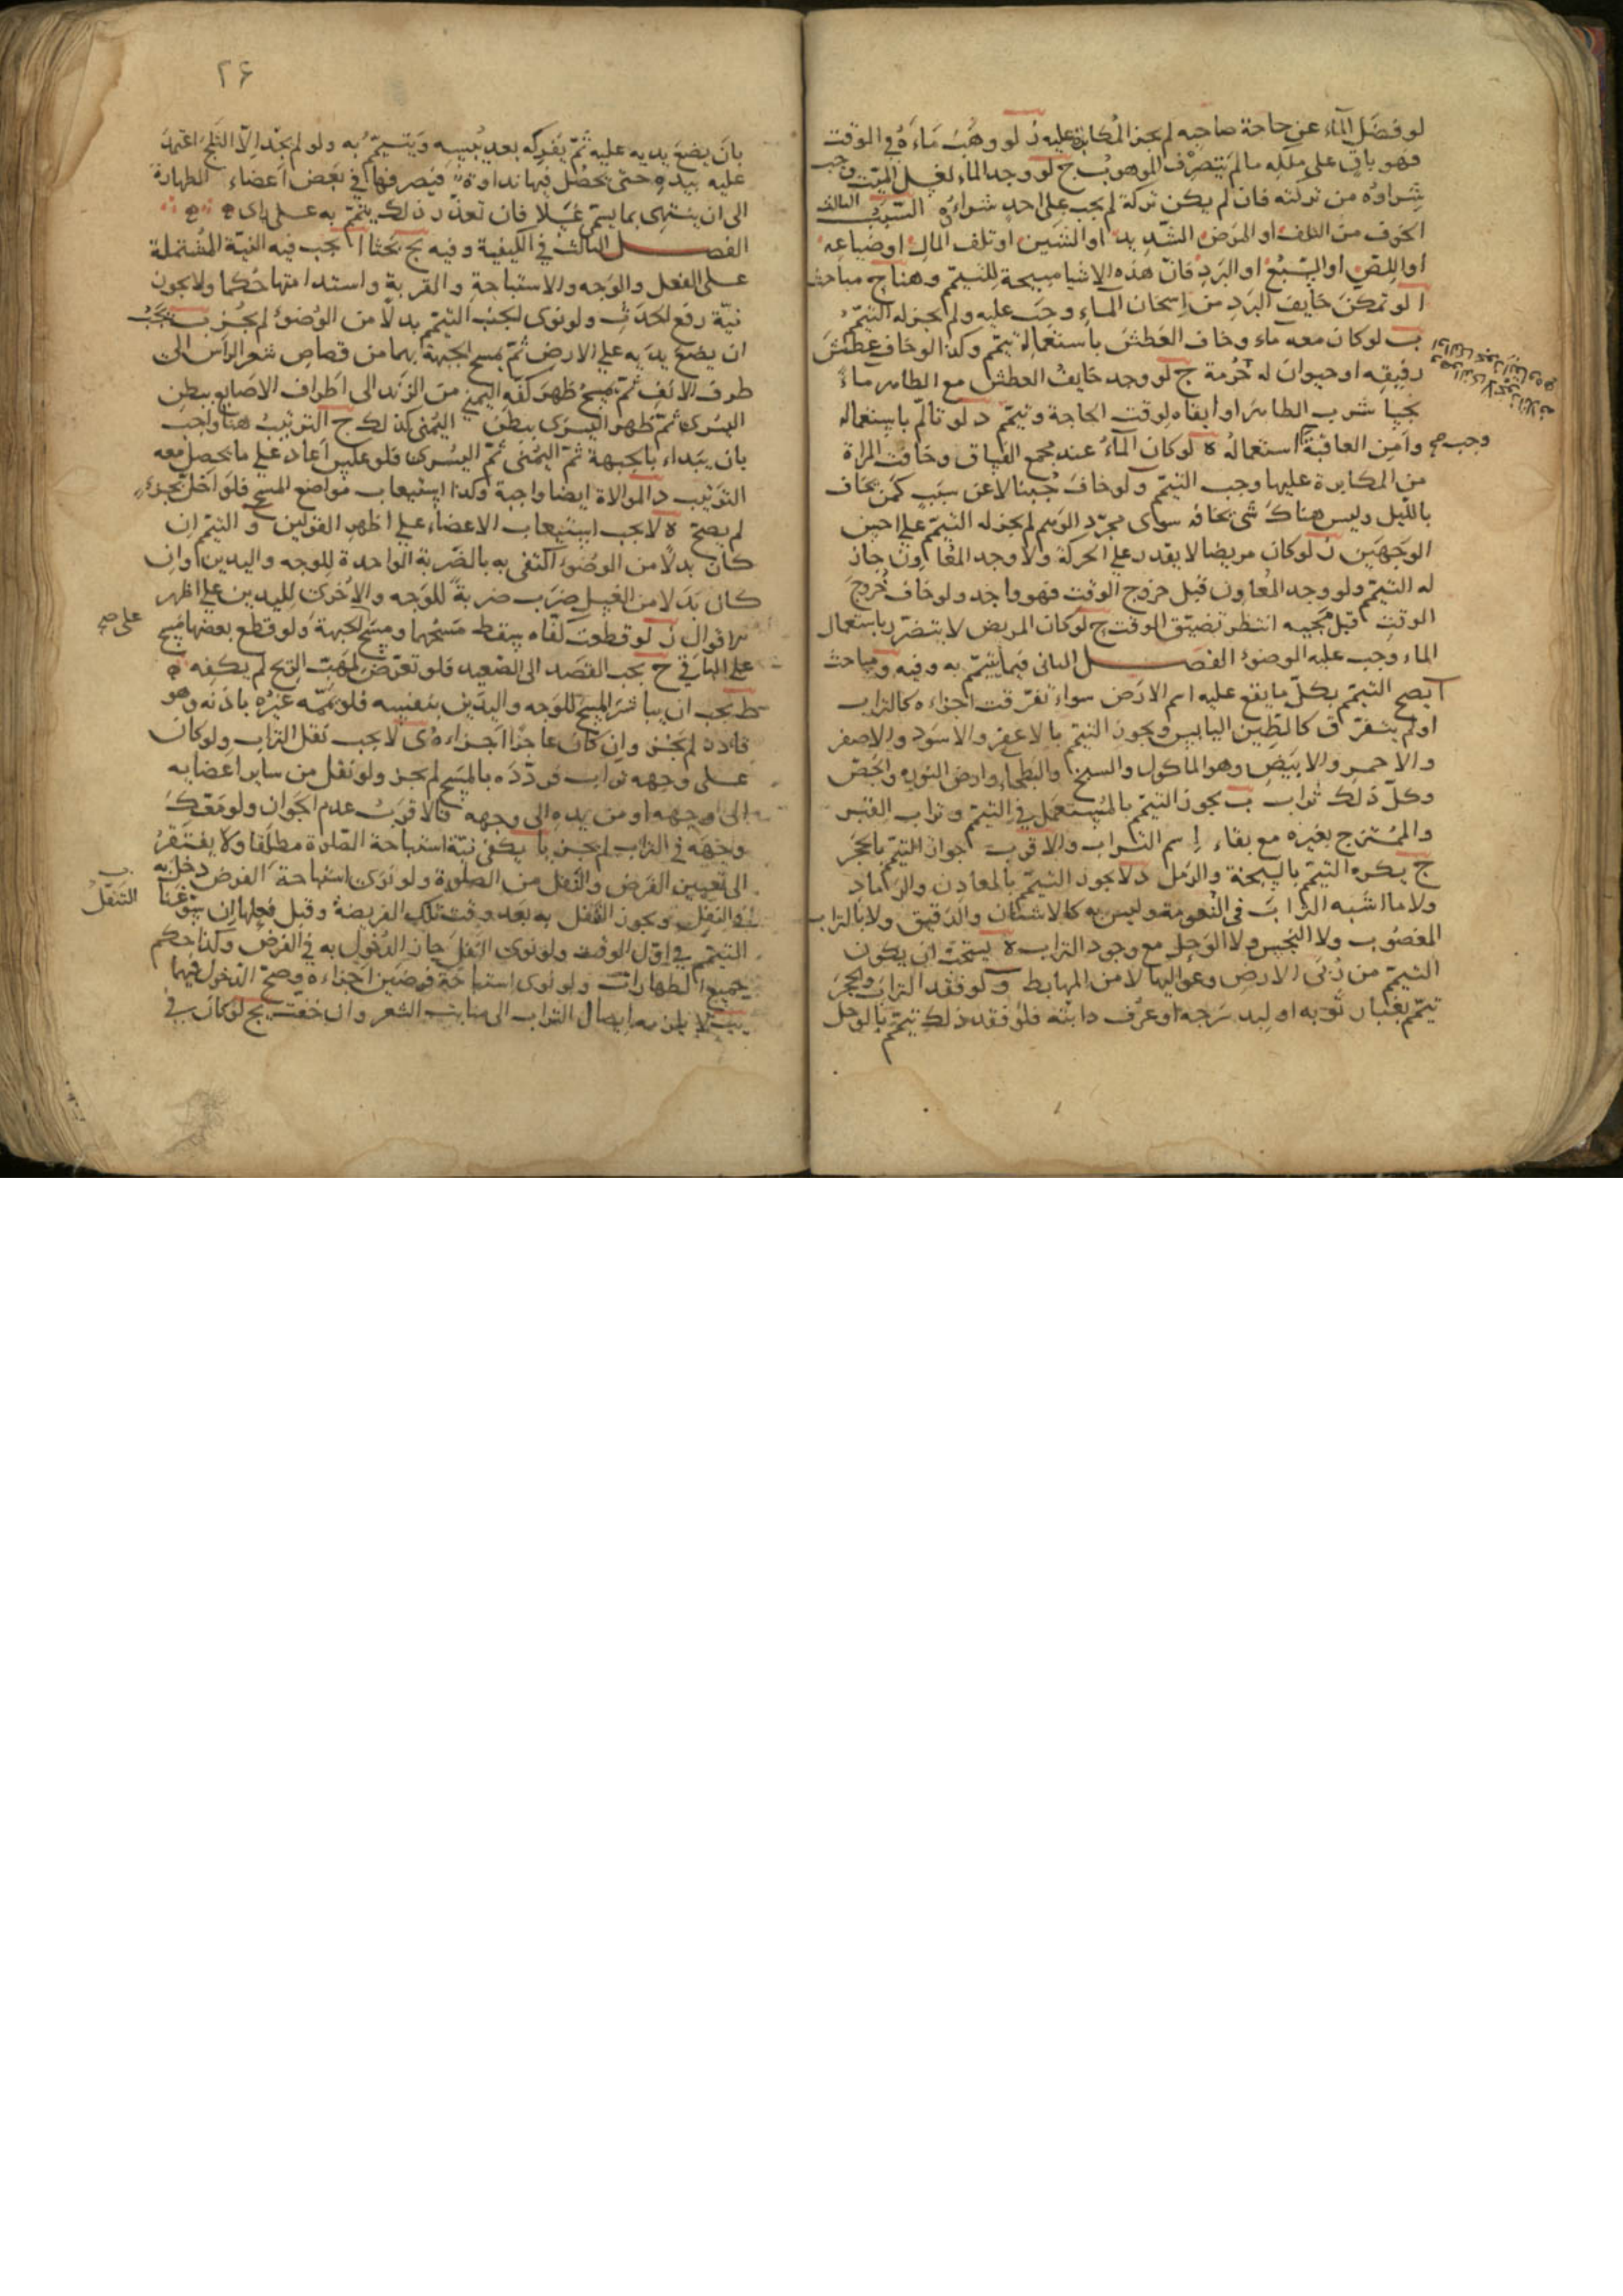 لو فضل الماء عن حاجة صاحبه لم يجز المكابرة عليه ز لو وهب ماءه في الوقت
فهو باق على ملكه ما لم يتصرف الموهوب ح لو وجد الماء لغسل الميت وجب
شراؤه من تركته فان لم يكن تركة لم يجب على احد شراؤه السبب الثالث
الخوف من التلف او المرض الشديد او الشين او تلف المال او ضياعه
او اللص او السبع او البرد فان هذه الاشيا مبيحة للتيمم وهنا ح مباحث
ا لو تمكن خايف البرد من اسخان الماء وجب عليه ولم يجز له التيمم
ب لو كان معه ماء وخاف العطش باستعماله تيمم وكذا لو خاف عطش
رفيقه او حيوان له حرمة ج لو وجد خايف العطش مع الطاهر ماء
نجسا شرب الطاهر او ابقاه لوقت الحاجة وتيمم د لو تالم باستعماله
وامن العاقبة استعماله ه لو كان الماء عند مجمع الفساق وخافت المراة
وجب صح
من المكابرة عليها وجب التيمم ولو خاف جبنا لا عن سبب كمن يخاف
بالليل وليس هناك شي يخافه سوى مجرد الوهم لم يجز له التيمم على احسن
الوجهين ز لو كان مريضا لا يقدر على الحركة ولا وجد المعاون جاز
له التيمم ولو وجد المعاون قبل خروج الوقت فهو واجد ولو خاف خروج
الوقت قبل مجيبه انتظر تضيق الوقت ح لو كان المريض لا يتضرر باستعمال
الماء وجب عليه الوضوء الفصل الثانى فيما يتيمم به وفيه و مباحث
ا يصح التيمم بكل ما يقع عليه اسم الارض سواء تفرقت اجزاءه كالتراب
او لم يتفرق كالطين اليابس ويجوز التيمم بالاعفر والاسود والاصفر
والاحمر والابيض وهو الماكول والسبخ والبطحاء وارض النورة والجص
وكل ذلك تراب ب يجوز التيمم بالمستعمل في التيمم وتراب القبر
والممتزج بغيره مع بقاء اسم التراب والاقرب جواز التيمم بالحجر
ج يكره التيمم بالسبخة والرمل د لا يجوز التيمم بالمعادن والرماد
ولا ما اشبه التراب فى النعومة وليس به كالاشنان والدقيق ولا بالتراب
المغصوب ولا النجس ولا الوحل مع وجود التراب ه يستحب ان يكون
التيمم من ربى الارض وعواليها لا من المهابط و لو فقد التراب والحجر
تيمم بغبار ثوبه او لبد سرجه او عرف دابته فلو فقد ذلك تيمم بالوحل
٢۶
بان يضع يديه عليه ثم يفركه بعد يبسه ويتيمم به ولو لم يجد الا الثلج اعتمد
عليه بيده حتى يحصل فيها نداوة فيصرفها في بعض اعضاء الطهارة
الى ان ينتهى بما يتم غسلا فان تعذر ذلك يتمم به على راى
الفصل الثالث في الكيفية وفيه يج بحثا ا يجب فيه النية المشتملة
على الفعل والوجه والاستباحة والقربة واستدامتها حكما ولا يجوز
نية رفع الحدث ولو نوى الجنب التيمم بدلا من الوضوء لم يجز ب يجب
ان يضع يديه على الارض ثم يمسح الجبهة بهما من قصاص شعر الراس الى
طرف الانف ثم يمسح ظهر كفه اليمنى من الزند الى اطراف الاصابع ببطن
اليسرى ثم ظهر اليسرى ببطن اليمنى كذلك ج الترتيب هنا واجب
بان يبداء بالجبهة ثم اليمنى ثم اليسرى فلو عكس اعاد على ما يحصل معه
الترتيب د الموالاة ايضا واجبة وكذا استيعاب مواضع المسح فلو اخل بجزء
لم يصح ه لا يجب استيعاب الاعضاء على اظهر القولين و التيمم ان
كان بدلا من الوضوء اكتفى به بالضربة الواحدة للوجه واليدين وان
كان بدلا من الغسل ضرب ضربة للوجه والاخرى لليدين على اظهر
الاقوال ز لو قطعت كفاه سقط مسحهما ومسح الجبهة ولو قطع بعضها مسح
على صح
على الباقي ح يجب القصد الى الصعيد فلو تعرض لمهب الريح لم يكفه
ط يجب ان يباشر المسح للوجه واليدين بنفسه فلو يممه غيره باذنه وهو
قادر لم يجز وان كان عاجزا اجزاءه ى لا يجب نقل التراب ولو كان
على وجهه تراب فردده بالمسح لم يجز ولو نقل من ساير اعضايه
الى وجهه او من يده الى وجهه فالاقرب عدم الجواز ولو معك
وجهه في التراب لم يجز يا يكفى نية استباحة الصلاة مطلقا ولا يفتقر
الى تعيين الفرض والنفل من الصلوة ولو نوى استباحة الفرض دخل به
في النفل ويجوز النفل به بعد وقت تلك الفريضة وقبل فعلها ان سوغنا
التنفل
التيمم في اول الوقت ولو نوى النفل جاز الدخول به في الفرض وكذا حكم
جميع الطهارات ولو نوى استباحة فرضين اجزاءه وصح الدخول فيهما
يب لا يلزمه ايصال التراب الى منابت الشعر وان خفت يج لو كان في